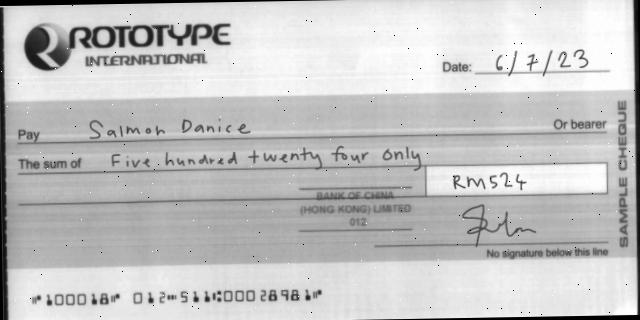 ROTOTYPE
INTERNATIONAL
Date: 6/7/23
Pay Salmon Danice Or bearer
The sum of Five hundred twenty four only
RM524
BANK OF CHINA
(HONG KONG) LIMITED
012
No signature below this line
SAMPLE CHEQUE
⑈100018⑈ 012⑉511⑆00028981⑈